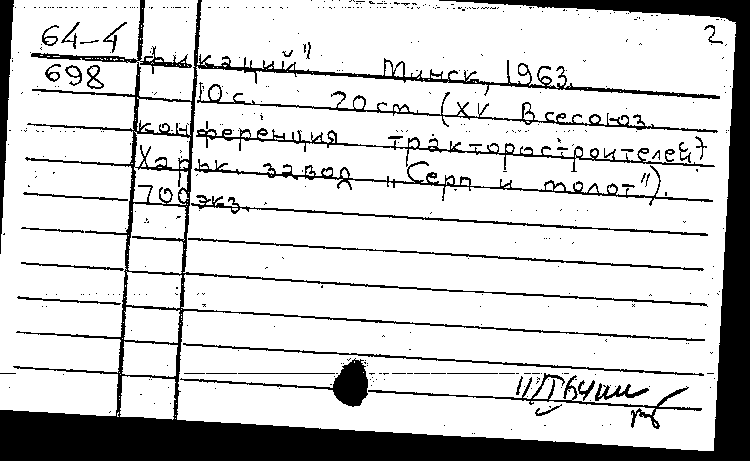 2
64-4
698
фикаций" Минск, 1963.
10 с. 20 см. (XV Всесоюз.
конференция тракторостроителей.
Харьк. завод „Серп и молот").
700 экз.